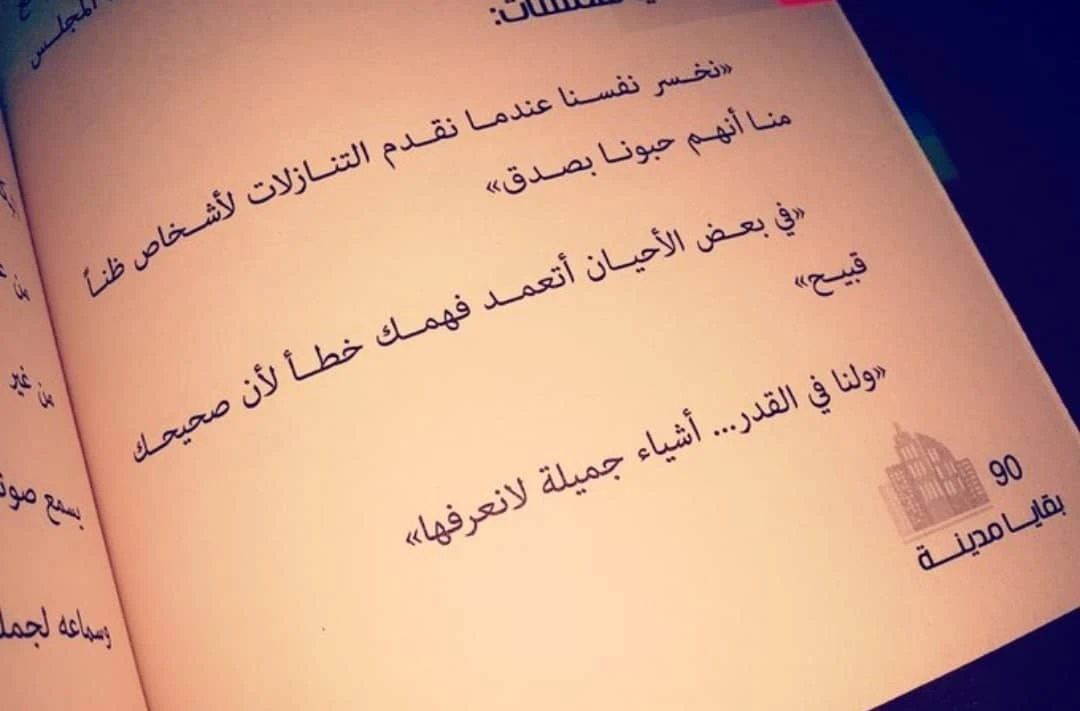 «نخسر نفسنا عندما نقدم التنازلات لأشخاص ظناً
منا أنهم حبونا بصدق»
«في بعض الأحيان أتعمد فهمك خطأ لأن صحيحك
قبيح»
«ولنا في القدر... أشياء جميلة لانعرفها»
90
بقايا مدينة
المجلس
من
من غير
يسمع
وسماعه